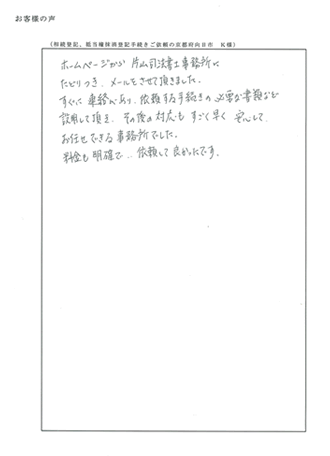 お客様の声
(相続登記、抵当権抹消登記手続きご依頼の京都府向日市 K様)
ホームページから 片山司法書士事務所に
たどりつき、メールをさせて頂きました。
すぐに連絡があり、依頼する手続きの必要な書類など
説明して頂き、その後の対応もすごく早く安心して、
お任せできる事務所でした。
料金も明確で、依頼して良かったです。